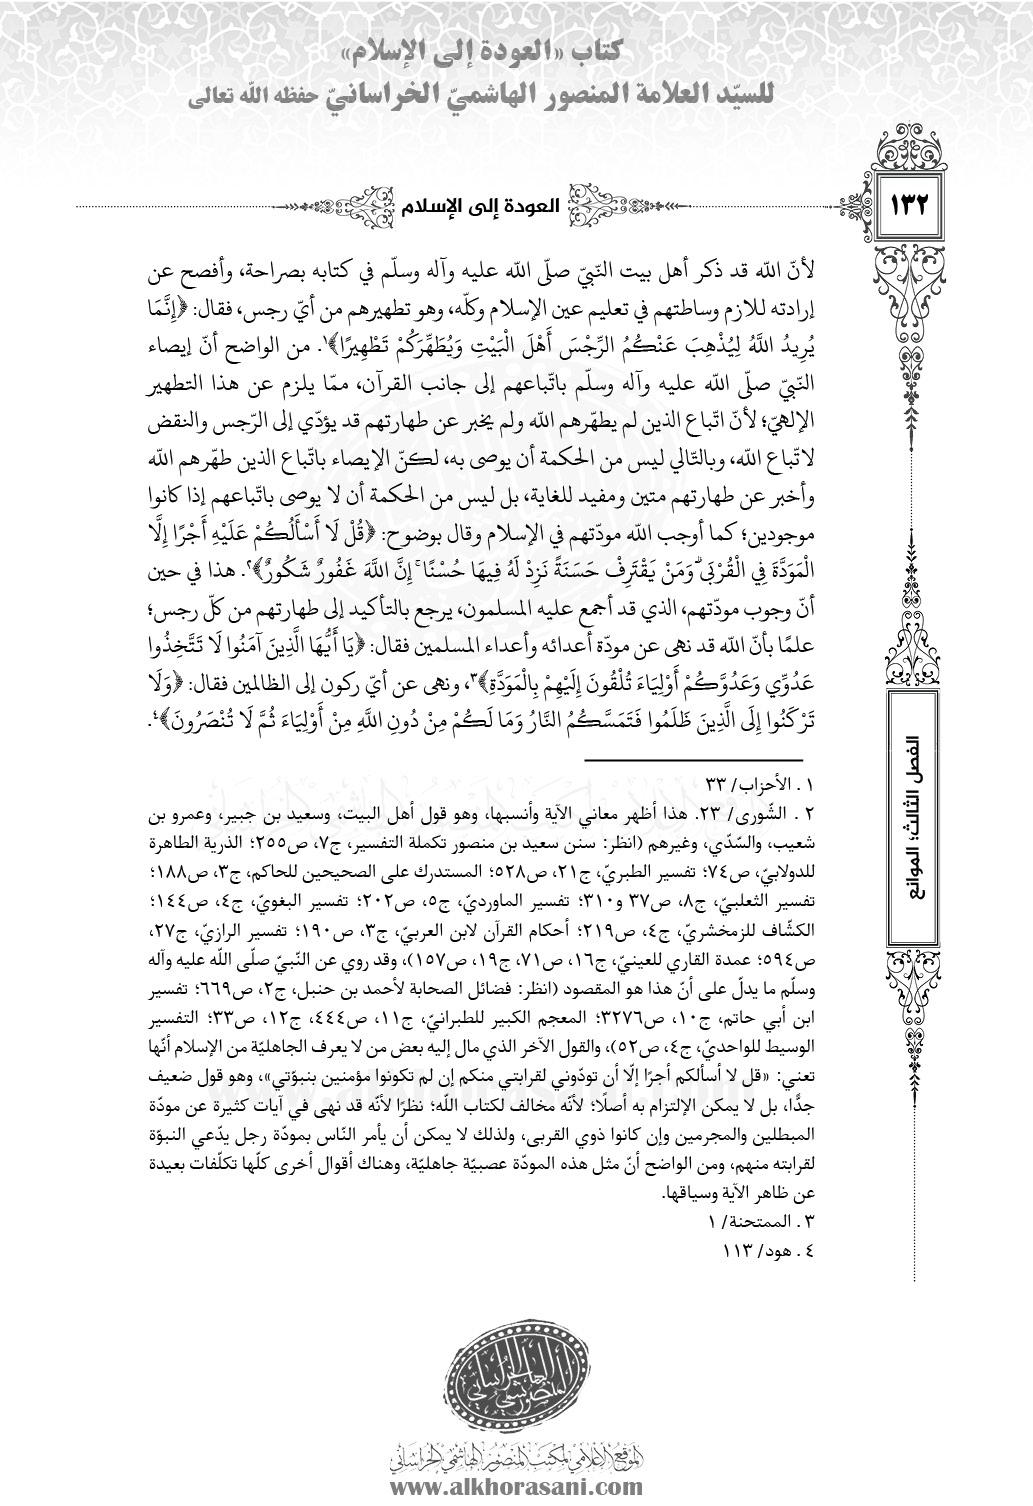 كتاب «العودة إلى الإسلام»
للسيّد العلامة المنصور الهاشميّ الخراسانيّ حفظه اللّه تعالى
١٣٢
العودة إلى الإسلام
لأنّ اللّه قد ذكر أهل بيت النّبيّ صلّى اللّه عليه وآله وسلّم في كتابه بصراحة، وأفصح عن
إرادته للازم وساطتهم في تعليم عين الإسلام وكلّه، وهو تطهيرهم من أيّ رجس، فقال: ﴿إِنَّمَا
يُرِيدُ اللَّهُ لِيُذْهِبَ عَنْكُمُ الرِّجْسَ أَهْلَ الْبَيْتِ وَيُطَهِّرَكُمْ تَطْهِيرًا﴾١. من الواضح أنّ إيصاء
النّبيّ صلّى اللّه عليه وآله وسلّم باتّباعهم إلى جانب القرآن، ممّا يلزم عن هذا التطهير
الإلهيّ؛ لأنّ اتّباع الذين لم يطهّرهم اللّه ولم يخبر عن طهارتهم قد يؤدّي إلى الرّجس والنقض
لاتّباع اللّه، وبالتّالي ليس من الحكمة أن يوصى به، لكنّ الإيصاء باتّباع الذين طهّرهم اللّه
وأخبر عن طهارتهم متين ومفيد للغاية، بل ليس من الحكمة أن لا يوصى باتّباعهم إذا كانوا
موجودين؛ كما أوجب اللّه مودّتهم في الإسلام وقال بوضوح: ﴿قُلْ لَا أَسْأَلُكُمْ عَلَيْهِ أَجْرًا إِلَّا
الْمَوَدَّةَ فِي الْقُرْبَى ۗ وَمَنْ يَقْتَرِفْ حَسَنَةً نَزِدْ لَهُ فِيهَا حُسْنًا ۚ إِنَّ اللَّهَ غَفُورٌ شَكُورٌ﴾٢. هذا في حين
أنّ وجوب مودّتهم، الذي قد أجمع عليه المسلمون، يرجع بالتأكيد إلى طهارتهم من كلّ رجس؛
علمًا بأنّ اللّه قد نهى عن مودّة أعدائه وأعداء المسلمين فقال: ﴿يَا أَيُّهَا الَّذِينَ آمَنُوا لَا تَتَّخِذُوا
عَدُوِّي وَعَدُوَّكُمْ أَوْلِيَاءَ تُلْقُونَ إِلَيْهِمْ بِالْمَوَدَّةِ﴾٣، ونهى عن أيّ ركون إلى الظالمين فقال: ﴿وَلَا
تَرْكَنُوا إِلَى الَّذِينَ ظَلَمُوا فَتَمَسَّكُمُ النَّارُ وَمَا لَكُمْ مِنْ دُونِ اللَّهِ مِنْ أَوْلِيَاءَ ثُمَّ لَا تُنْصَرُونَ﴾٤.
الفصل الثالث؛ الموانع
١ . الأحزاب/ ٣٣
٢ . الشّورى/ ٢٣. هذا أظهر معاني الآية وأنسبها، وهو قول أهل البيت، وسعيد بن جبير، وعمرو بن
شعيب، والسّدّي، وغيرهم (انظر: سنن سعيد بن منصور تكملة التفسير، ج٧، ص٢٥٥؛ الذرية الطاهرة
للدولابيّ، ص٧٤؛ تفسير الطبريّ، ج٢١، ص٥٢٨؛ المستدرك على الصحيحين للحاكم، ج٣، ص١٨٨؛
تفسير الثعلبيّ، ج٨، ص٣٧ و٣١٠؛ تفسير الماورديّ، ج٥، ص٢٠٢؛ تفسير البغويّ، ج٤، ص١٤٤؛
الكشّاف للزمخشريّ، ج٤، ص٢١٩؛ أحكام القرآن لابن العربيّ، ج٣، ص١٩٠؛ تفسير الرازيّ، ج٢٧،
ص٥٩٤؛ عمدة القاري للعينيّ، ج١٦، ص٧١، ج١٩، ص١٥٧)، وقد روي عن النّبيّ صلّى اللّه عليه وآله
وسلّم ما يدلّ على أنّ هذا هو المقصود (انظر: فضائل الصحابة لأحمد بن حنبل، ج٢، ص٦٦٩؛ تفسير
ابن أبي حاتم، ج١٠، ص٣٢٧٦؛ المعجم الكبير للطبرانيّ، ج١١، ص٤٤٤، ج١٢، ص٣٣؛ التفسير
الوسيط للواحديّ، ج٤، ص٥٢)، والقول الآخر الذي مال إليه بعض من لا يعرف الجاهليّة من الإسلام أنّها
تعني: «قل لا أسألكم أجرًا إلّا أن تودّوني لقرابتي منكم إن لم تكونوا مؤمنين بنبوّتي»، وهو قول ضعيف
جدًّا، بل لا يمكن الإلتزام به أصلًا؛ لأنّه مخالف لكتاب اللّه؛ نظرًا لأنّه قد نهى في آيات كثيرة عن مودّة
المبطلين والمجرمين وإن كانوا ذوي القربى، ولذلك لا يمكن أن يأمر النّاس بمودّة رجل يدّعي النبوّة
لقرابته منهم، ومن الواضح أنّ مثل هذه المودّة عصبيّة جاهليّة، وهناك أقوال أخرى كلّها تكلّفات بعيدة
عن ظاهر الآية وسياقها.
٣ . الممتحنة/ ١
٤ . هود/ ١١٣
المنصور الهاشمي الخراساني
الموقع الإعلامي لمكتب المنصور الهاشمي الخراساني
www.alkhorasani.com